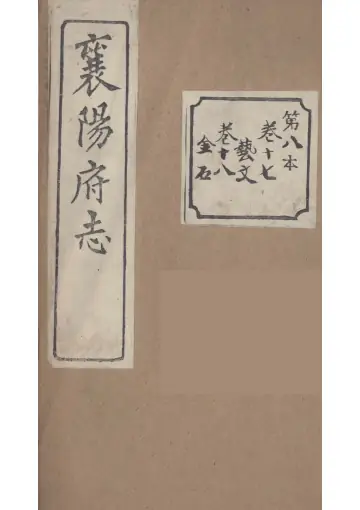 襄陽府志
第八本
卷十七
藝文
卷十八
金石